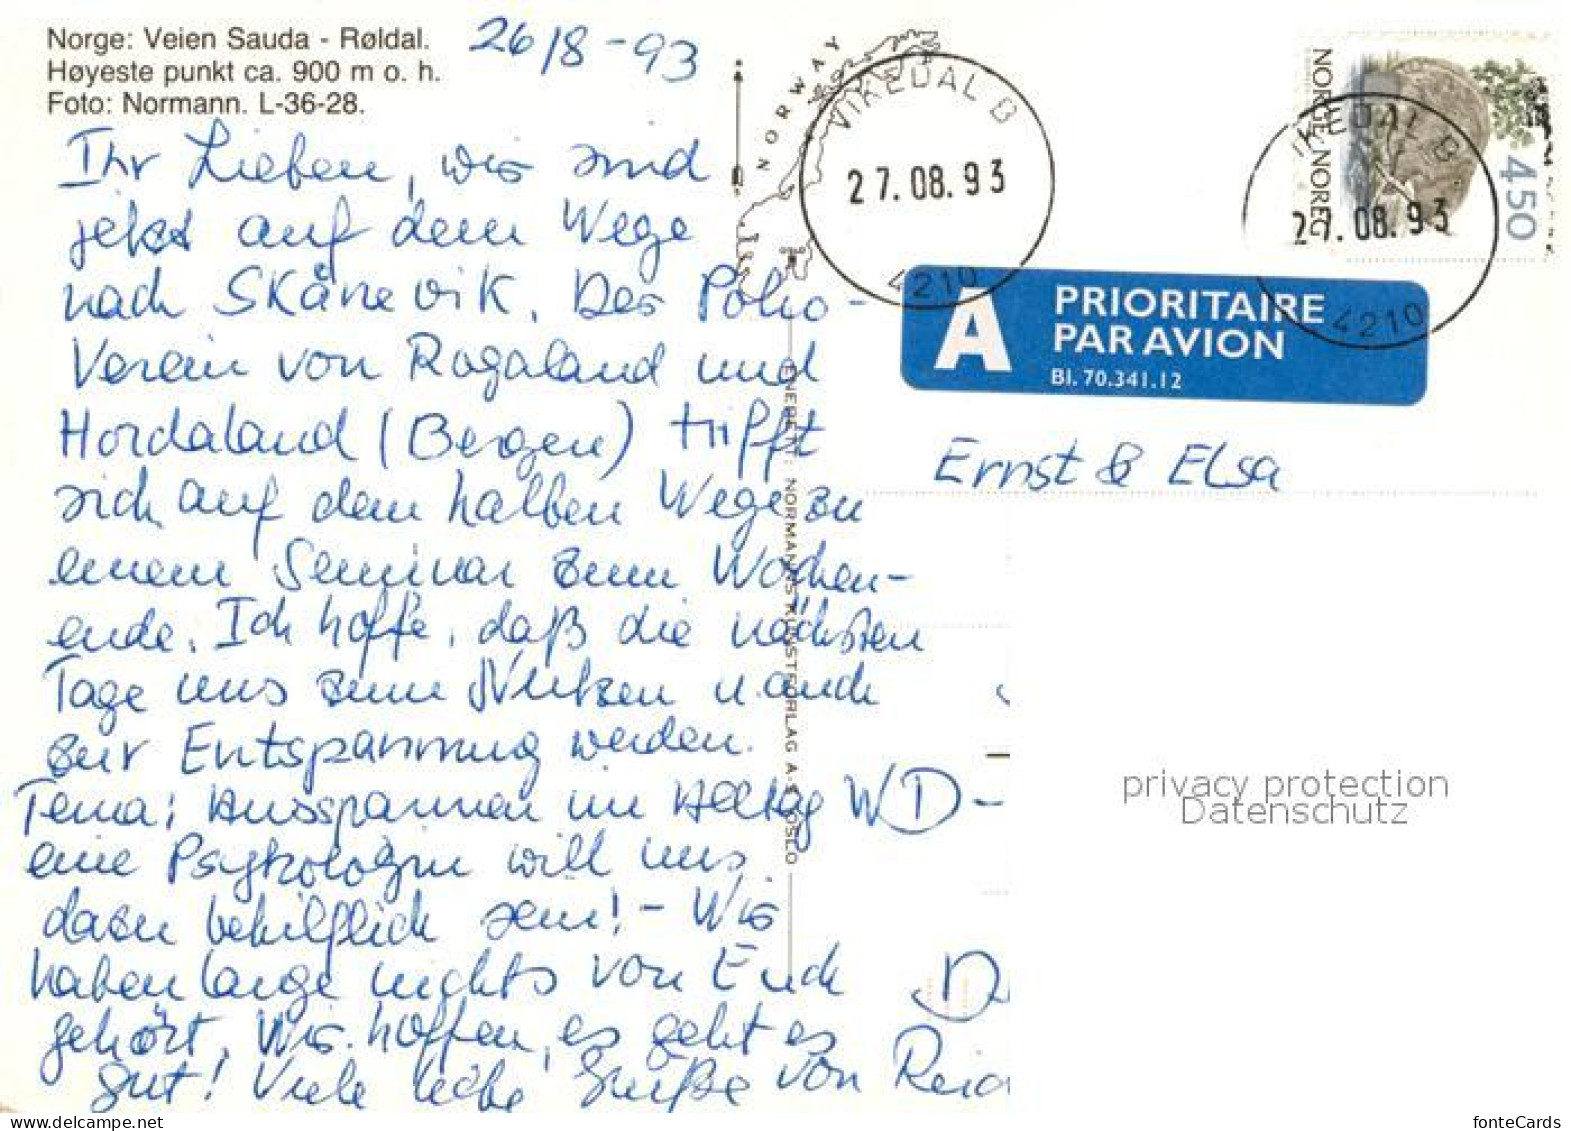 Norge: Veien Sauda - Røldal.
Høyeste punkt ca. 900 m o. h.
Foto: Normann. L-36-28.
26/8-93
Ihr Lieben, wir sind
jetzt auf dem Wege
nach SKÅNEVIK. Der Polio-
Verein von Rogaland und
Hordaland (Bergen) trifft
sich auf dem halben Wege zu
einem Seminar zum Wochen-
ende. Ich hoffe, daß die nächsten
Tage uns zum Nutzen u. auch
zur Entspannung werden.
Tema: Ausspannen im Alltag
eine Psykologin will uns
dabei behilflich sein! - Wir
haben lange nichts von Euch
gehört. Wir hoffen, es geht es
gut! Viele liebe Grüße von
NORWAY
VIKEDAL B
27.08.93
4210
NORGE NOREG
450
VIKEDAL B
27.08.93
4210
A PRIORITAIRE
PAR AVION
Bl. 70.341.12
ENERETT: NORMANNS KUNSTFORLAG A.S. OSLO
Ernst & Elsa
privacy protection
Datenschutz
fonteCards